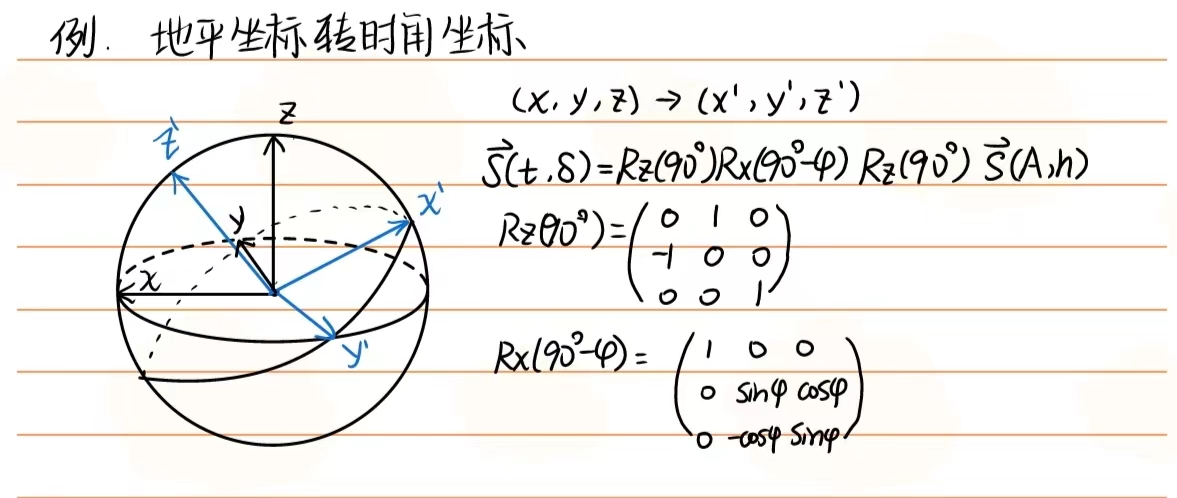 例. 地平坐标转时角坐标
z
z'
x'
y
x
y'
(x, y, z) → (x', y', z')
S⃗(t, δ) = Rz(90°)Rx(90°-φ) Rz(90°) S⃗(A, h)
Rz(90°) = ( 0 1 0
-1 0 0
0 0 1 )
Rx(90°-φ) = ( 1 0 0
0 sinφ cosφ
0 -cosφ sinφ )